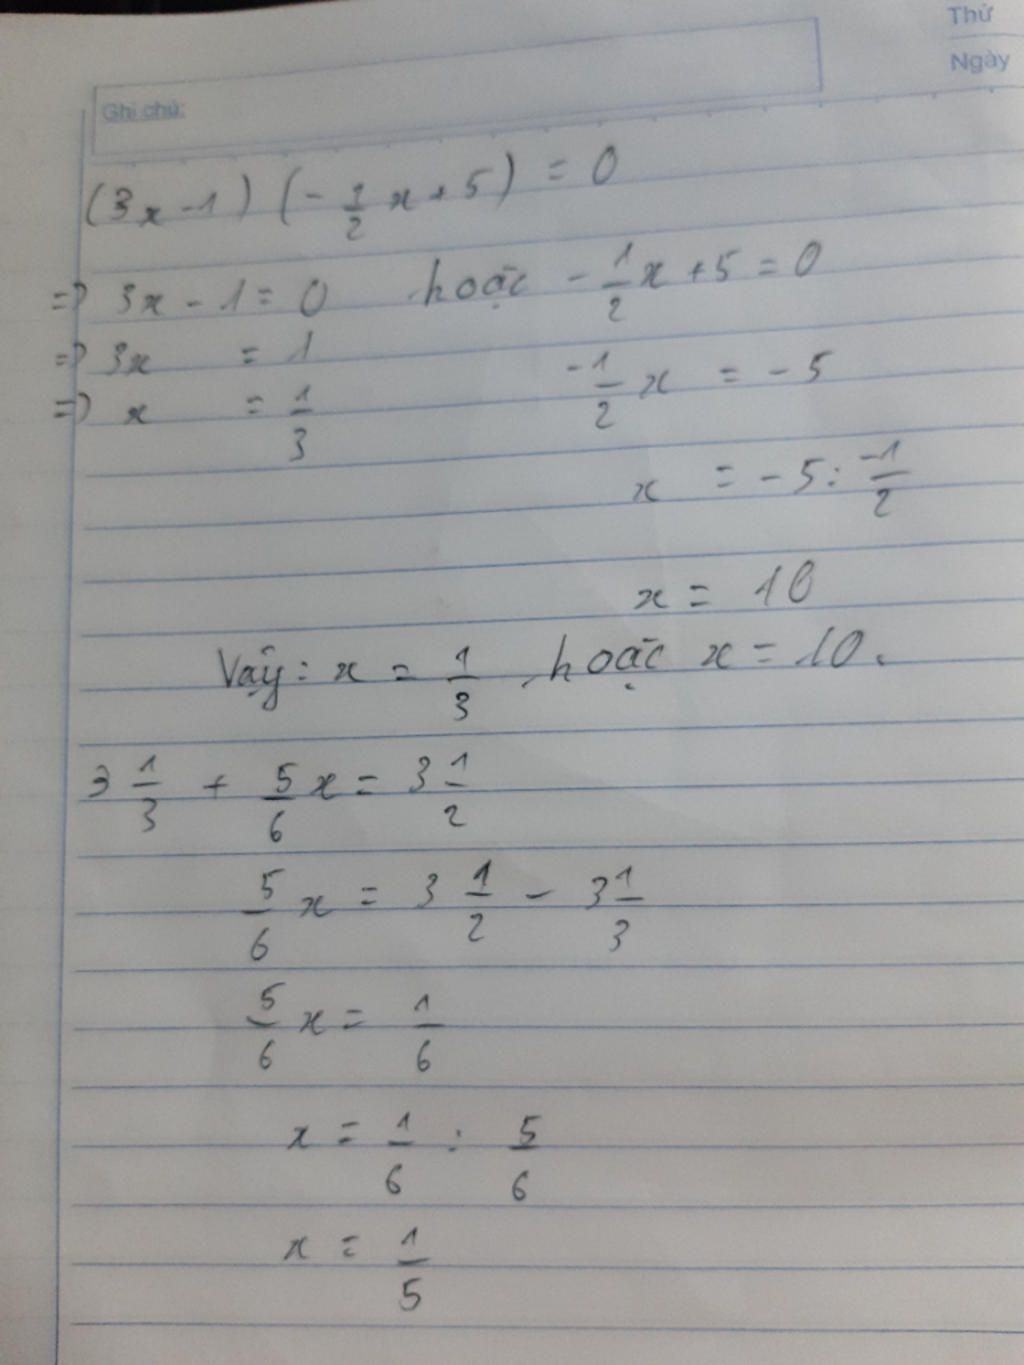 Thứ
Ngày
Ghi chú:
(3x - 1) (- 1/2 x + 5) = 0
=> 3x - 1 = 0 hoặc - 1/2 x + 5 = 0
=> 3x = 1 -1/2 x = - 5
=> x = 1/3
x = - 5 : -1/2
x = 10
Vậy: x = 1/3 hoặc x = 10.
3 1/3 + 5/6 x = 3 1/2
5/6 x = 3 1/2 - 3 1/3
5/6 x = 1/6
x = 1/6 : 5/6
x = 1/5